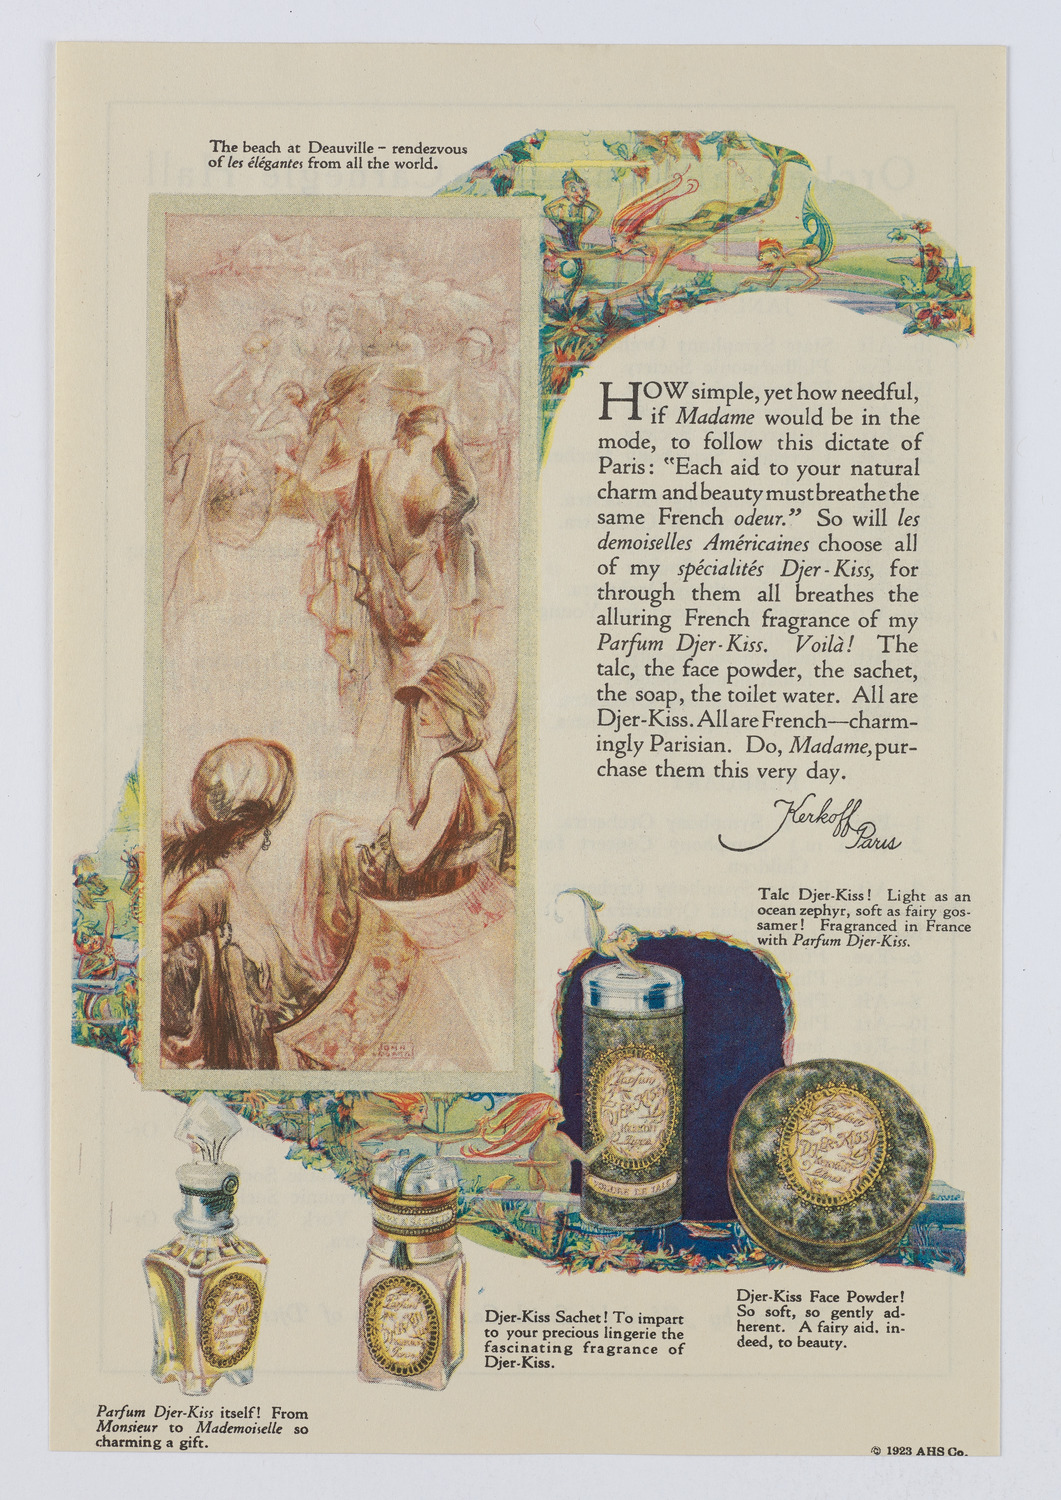 The beach at Deauville – rendezvous
of les élégantes from all the world.
HOW simple, yet how needful,
if Madame would be in the
mode, to follow this dictate of
Paris: "Each aid to your natural
charm and beauty must breathe the
same French odeur." So will les
demoiselles Américaines choose all
of my spécialités Djer-Kiss, for
through them all breathes the
alluring French fragrance of my
Parfum Djer-Kiss. Voilà! The
talc, the face powder, the sachet,
the soap, the toilet water. All are
Djer-Kiss. All are French—charm-
ingly Parisian. Do, Madame, pur-
chase them this very day.
Kerkoff
Paris
Talc Djer-Kiss! Light as an
ocean zephyr, soft as fairy gos-
samer! Fragranced in France
with Parfum Djer-Kiss.
Parfum
DJER-KISS
KERKOFF
POUDRE DE TALC
DJER-KISS
KERKOFF
Djer-Kiss Face Powder!
So soft, so gently ad-
herent. A fairy aid, in-
deed, to beauty.
Djer-Kiss Sachet! To impart
to your precious lingerie the
fascinating fragrance of
Djer-Kiss.
Parfum Djer-Kiss itself! From
Monsieur to Mademoiselle so
charming a gift.
© 1923 AHS Co.